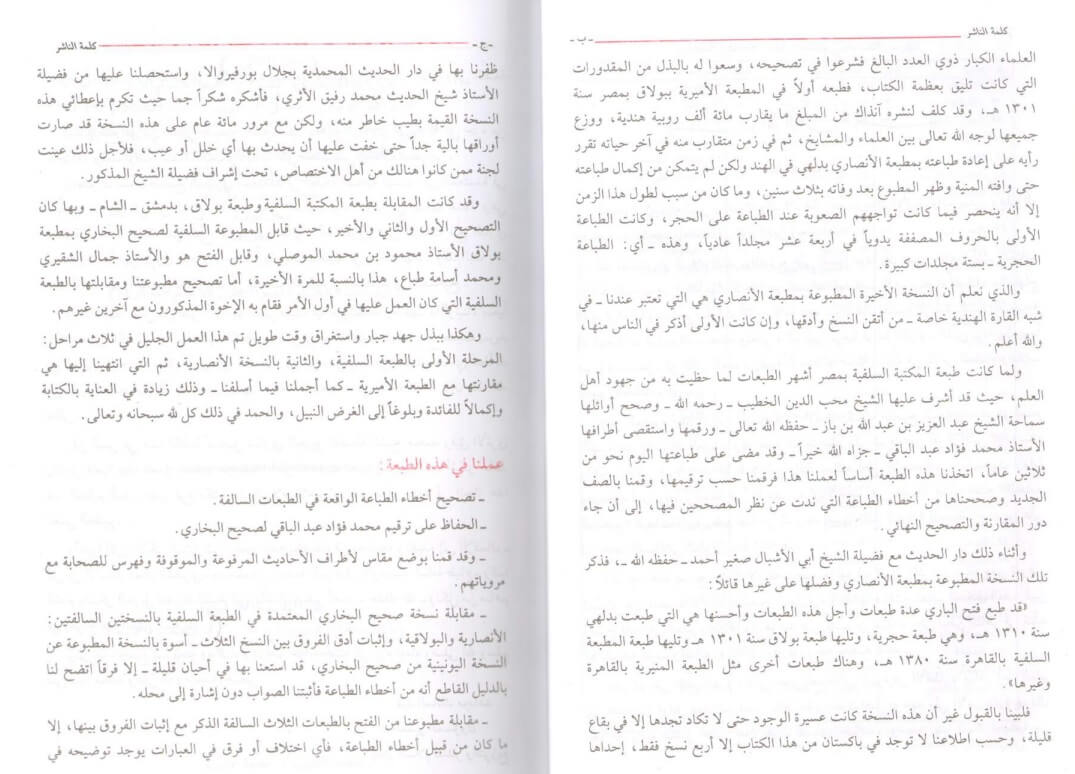 كلمة الناشر
- ب -
العلماء الكبار ذوي العدد البالغ فشرعوا في تصحيحه، وسعوا له بالبذل من المقدورات
التي كانت تليق بعظمة الكتاب، فطبعه أولاً في المطبعة الأميرية ببولاق بمصر سنة
١٣٠١ هـ، وقد كلف لنشره آنذاك من المبلغ ما يقارب مائة ألف روبية هندية، ووزع
جميعها لوجه الله تعالى بين العلماء والمشايخ، ثم في زمن متقارب منه في آخر حياته تقرر
رأيه على إعادة طباعته بمطبعة الأنصاري بدلهي في الهند ولكن لم يتمكن من إكمال طباعته
حتى وافته المنية وظهر المطبوع بعد وفاته بثلاث سنين، وما كان من سبب لطول هذا الزمن
إلا أنه ينحصر فيما كانت تواجههم الصعوبة عند الطباعة على الحجر، وكانت الطباعة
الأولى بالحروف المصففة يدوياً في أربعة عشر مجلداً عادياً، وهذه ـ أي: الطباعة
الحجرية ـ بستة مجلدات كبيرة.
والذي نعلم أن النسخة الأخيرة المطبوعة بمطبعة الأنصاري هي التي تعتبر عندنا ـ في
شبه القارة الهندية خاصة ـ من أتقن النسخ وأدقها، وإن كانت الأولى أذكر في الناس منها،
والله أعلم.
ولما كانت طبعة المكتبة السلفية بمصر أشهر الطبعات لما حظيت به من جهود أهل
العلم، حيث قد أشرف عليها الشيخ محب الدين الخطيب ـ رحمه الله ـ وصحح أوائلها
سماحة الشيخ عبد العزيز بن عبد الله بن باز ـ حفظه الله تعالى ـ ورقمها واستقصى أطرافها
الأستاذ محمد فؤاد عبد الباقي ـ جزاه الله خيراً ـ وقد مضى على طباعتها اليوم نحو من
ثلاثين عاماً، اتخذنا هذه الطبعة أساساً لعملنا هذا فرقمنا حسب ترقيمها، وقمنا بالصف
الجديد وصححناها من أخطاء الطباعة التي ندت عن نظر المصححين فيها، إلى أن جاء
دور المقارنة والتصحيح النهائي.
وأثناء ذلك دار الحديث مع فضيلة الشيخ أبي الأشبال صغير أحمد ـ حفظه الله ـ، فذكر
تلك النسخة المطبوعة بمطبعة الأنصاري وفضلها على غيرها قائلاً:
«قد طبع فتح الباري عدة طبعات وأجل هذه الطبعات وأحسنها هي التي طبعت بدلهي
سنة ١٣١٠ هـ، وهي طبعة حجرية، وتليها طبعة بولاق سنة ١٣٠١ هـ وتليها طبعة المطبعة
السلفية بالقاهرة سنة ١٣٨٠ هـ، وهناك طبعات أخرى مثل الطبعة المنيرية بالقاهرة
وغيرها».
فلبينا بالقبول غير أن هذه النسخة كانت عسيرة الوجود حتى لا تكاد تجدها إلا في بقاع
قليلة، وحسب اطلاعنا لا توجد في باكستان من هذا الكتاب إلا أربع نسخ فقط، إحداها
- ج -
كلمة الناشر
ظفرنا بها في دار الحديث المحمدية بجلال بورفيروالا، واستحصلنا عليها من فضيلة
الأستاذ شيخ الحديث محمد رفيق الأثري، فأشكره شكراً جما حيث تكرم بإعطائي هذه
النسخة القيمة بطيب خاطر منه، ولكن مع مرور مائة عام على هذه النسخة قد صارت
أوراقها بالية جداً حتى خفت عليها أن يحدث بها أي خلل أو عيب، فلأجل ذلك عينت
لجنة ممن كانوا هنالك من أهل الاختصاص، تحت إشراف فضيلة الشيخ المذكور.
وقد كانت المقابلة بطبعة المكتبة السلفية وطبعة بولاق، بدمشق ـ الشام ـ وبها كان
التصحيح الأول والثاني والأخير، حيث قابل المطبوعة السلفية لصحيح البخاري بمطبعة
بولاق الأستاذ محمود بن محمد الموصلي، وقابل الفتح هو والأستاذ جمال الشقيري
ومحمد أسامة طباع، هذا بالنسبة للمرة الأخيرة، أما تصحيح مطبوعتنا ومقابلتها بالطبعة
السلفية التي كان العمل عليها في أول الأمر فقام به الإخوة المذكورون مع آخرين غيرهم.
وهكذا ببذل جهد جبار واستغراق وقت طويل تم هذا العمل الجليل في ثلاث مراحل:
المرحلة الأولى بالطبعة السلفية، والثانية بالنسخة الأنصارية، ثم التي انتهينا إليها هي
مقارنتها مع الطبعة الأميرية ـ كما أجملنا فيما أسلفنا ـ وذلك زيادة في العناية بالكتابة
وإكمالاً للفائدة وبلوغاً إلى الغرض النبيل، والحمد في ذلك كل لله سبحانه وتعالى.
عملنا في هذه الطبعة:
ـ تصحيح أخطاء الطباعة الواقعة في الطبعات السالفة.
ـ الحفاظ على ترقيم محمد فؤاد عبد الباقي لصحيح البخاري.
ـ وقد قمنا بوضع مقاس لأطراف الأحاديث المرفوعة والموقوفة وفهرس للصحابة مع
مروياتهم.
ـ مقابلة نسخة صحيح البخاري المعتمدة في الطبعة السلفية بالنسختين السالفتين:
الأنصارية والبولاقية، وإثبات أدق الفروق بين النسخ الثلاث ـ أسوة بالنسخة المطبوعة عن
النسخة اليونينية من صحيح البخاري، قد استعنا بها في أحيان قليلة ـ إلا فرقاً اتضح لنا
بالدليل القاطع أنه من أخطاء الطباعة فأثبتنا الصواب دون إشارة إلى محله.
ـ مقابلة مطبوعتنا من الفتح بالطبعات الثلاث السالفة الذكر مع إثبات الفروق بينها، إلا
ما كان من قبيل أخطاء الطباعة، فأي اختلاف أو فرق في العبارات يوجد توضيحه في